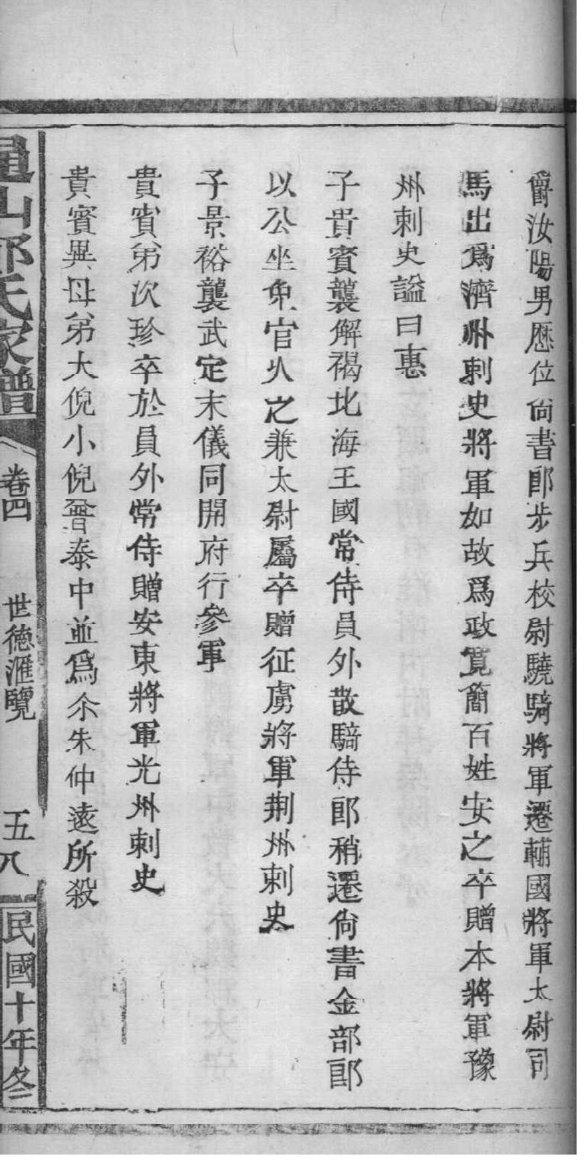 爵汝陽男歷位尙書郎步兵校尉驍騎將軍遷輔國將軍太尉司
馬出爲濟州刺史將軍如故爲政寬簡百姓安之卒贈本將軍豫
州刺史謚曰惠
子貴賓襲解褐北海王國常侍員外散騎侍郎稍遷尙書金部郎
以公坐免官久之兼太尉屬卒贈征虜將軍荆州刺史
子景裕襲武定末儀同開府行參軍
貴賓弟次珍卒於員外常侍贈安東將軍光州刺史
貴賓異母弟大倪小倪晉泰中並爲尒朱仲遠所殺
山鄭氏家譜
卷四
世德滙覽
五八
民國十年冬